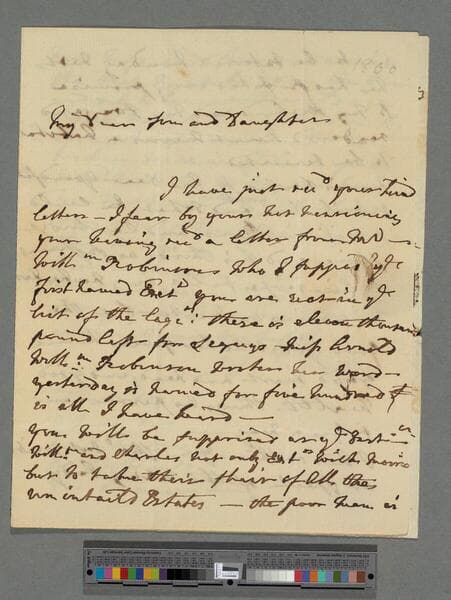 My Dear Son and Daughter
I have just rec.d your kind
letters – I fear by yours not mentioning
your having rec.d a letter from Mr
Will.m Robinson who I suppose is ye
first named Exet.r you are not in ye
list of the lega.s there is eleven thousand
pound left for Legacys Miss Arnold
Will.m Robinson writes her word
yesterday is named for five hundred &
is all I have heard –
you will be supprised at ye
Will.m and Charles not only Ext.rs with Morris
but to take their shair of all the
unintaild Estates – the poor man is